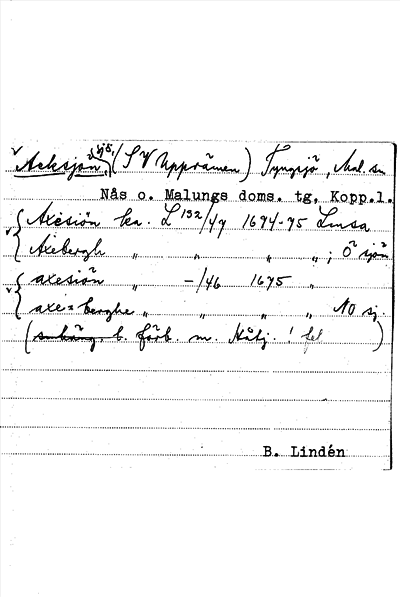 Acksjön sjö, (SV Upprämen) Tyngsjö, Mal. sn
Nås o. Malungs doms. tg, Kopp.l.
Axesiön ka. L 192/49 1674-75 LmSa
Axebergh " " " " ; Ö sjön
axesiön " -/46 1675 "
axe=berghe " " " " NO sj.
b. förb. m. ! fel )
B. Lindén